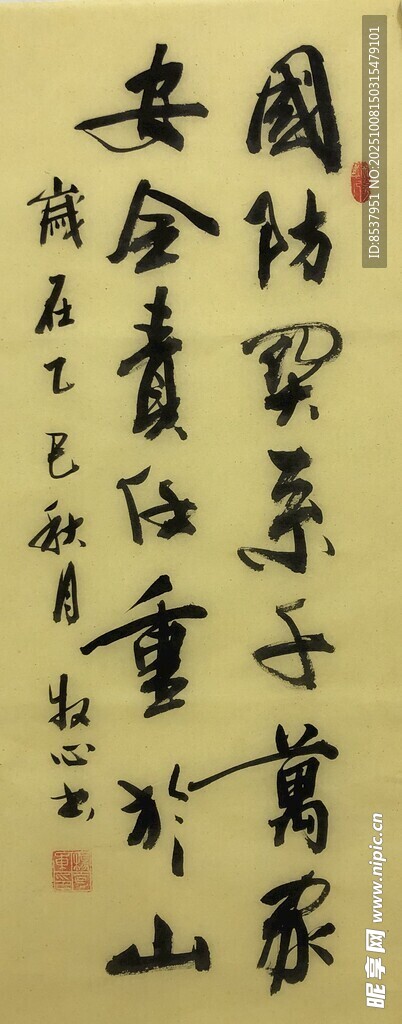 國防関系千萬家
安全責任重於山
歲在乙巳秋月 牧心書
ID:8537951 NO:20251008150315479101
昵享网 www.nipic.cn